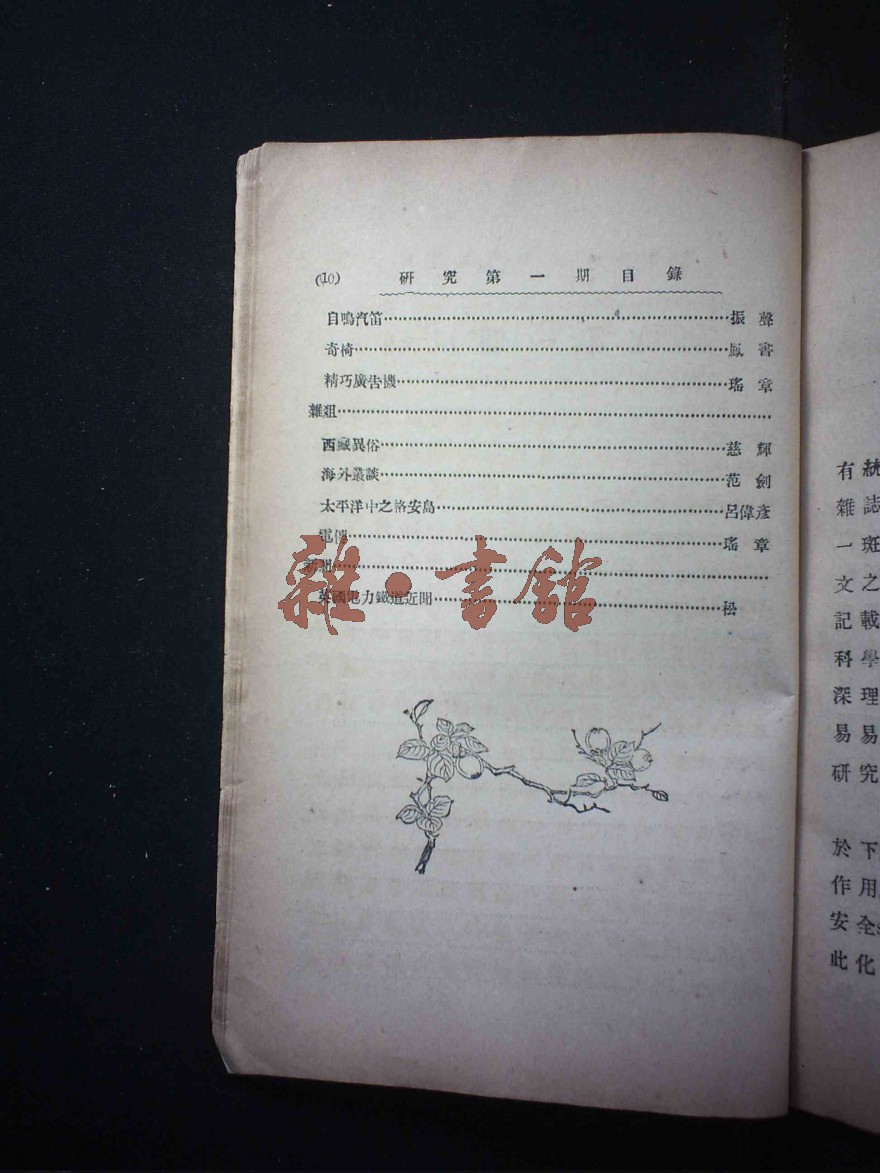 (10) 研究第一期目錄
自鳴汽笛 振聲
奇椅 鳳書
精巧廣告機 瑤章
雜俎
西藏異俗 慈輝
海外叢談 范劍
太平洋中之格安島 呂偉彥
電傳 瑤章
新
英國電力鐵道近聞 松
雜·書館
有統
雜誌
一斑
文之
記載
科學
深理
易易
研究
於下
作用
安全
此化